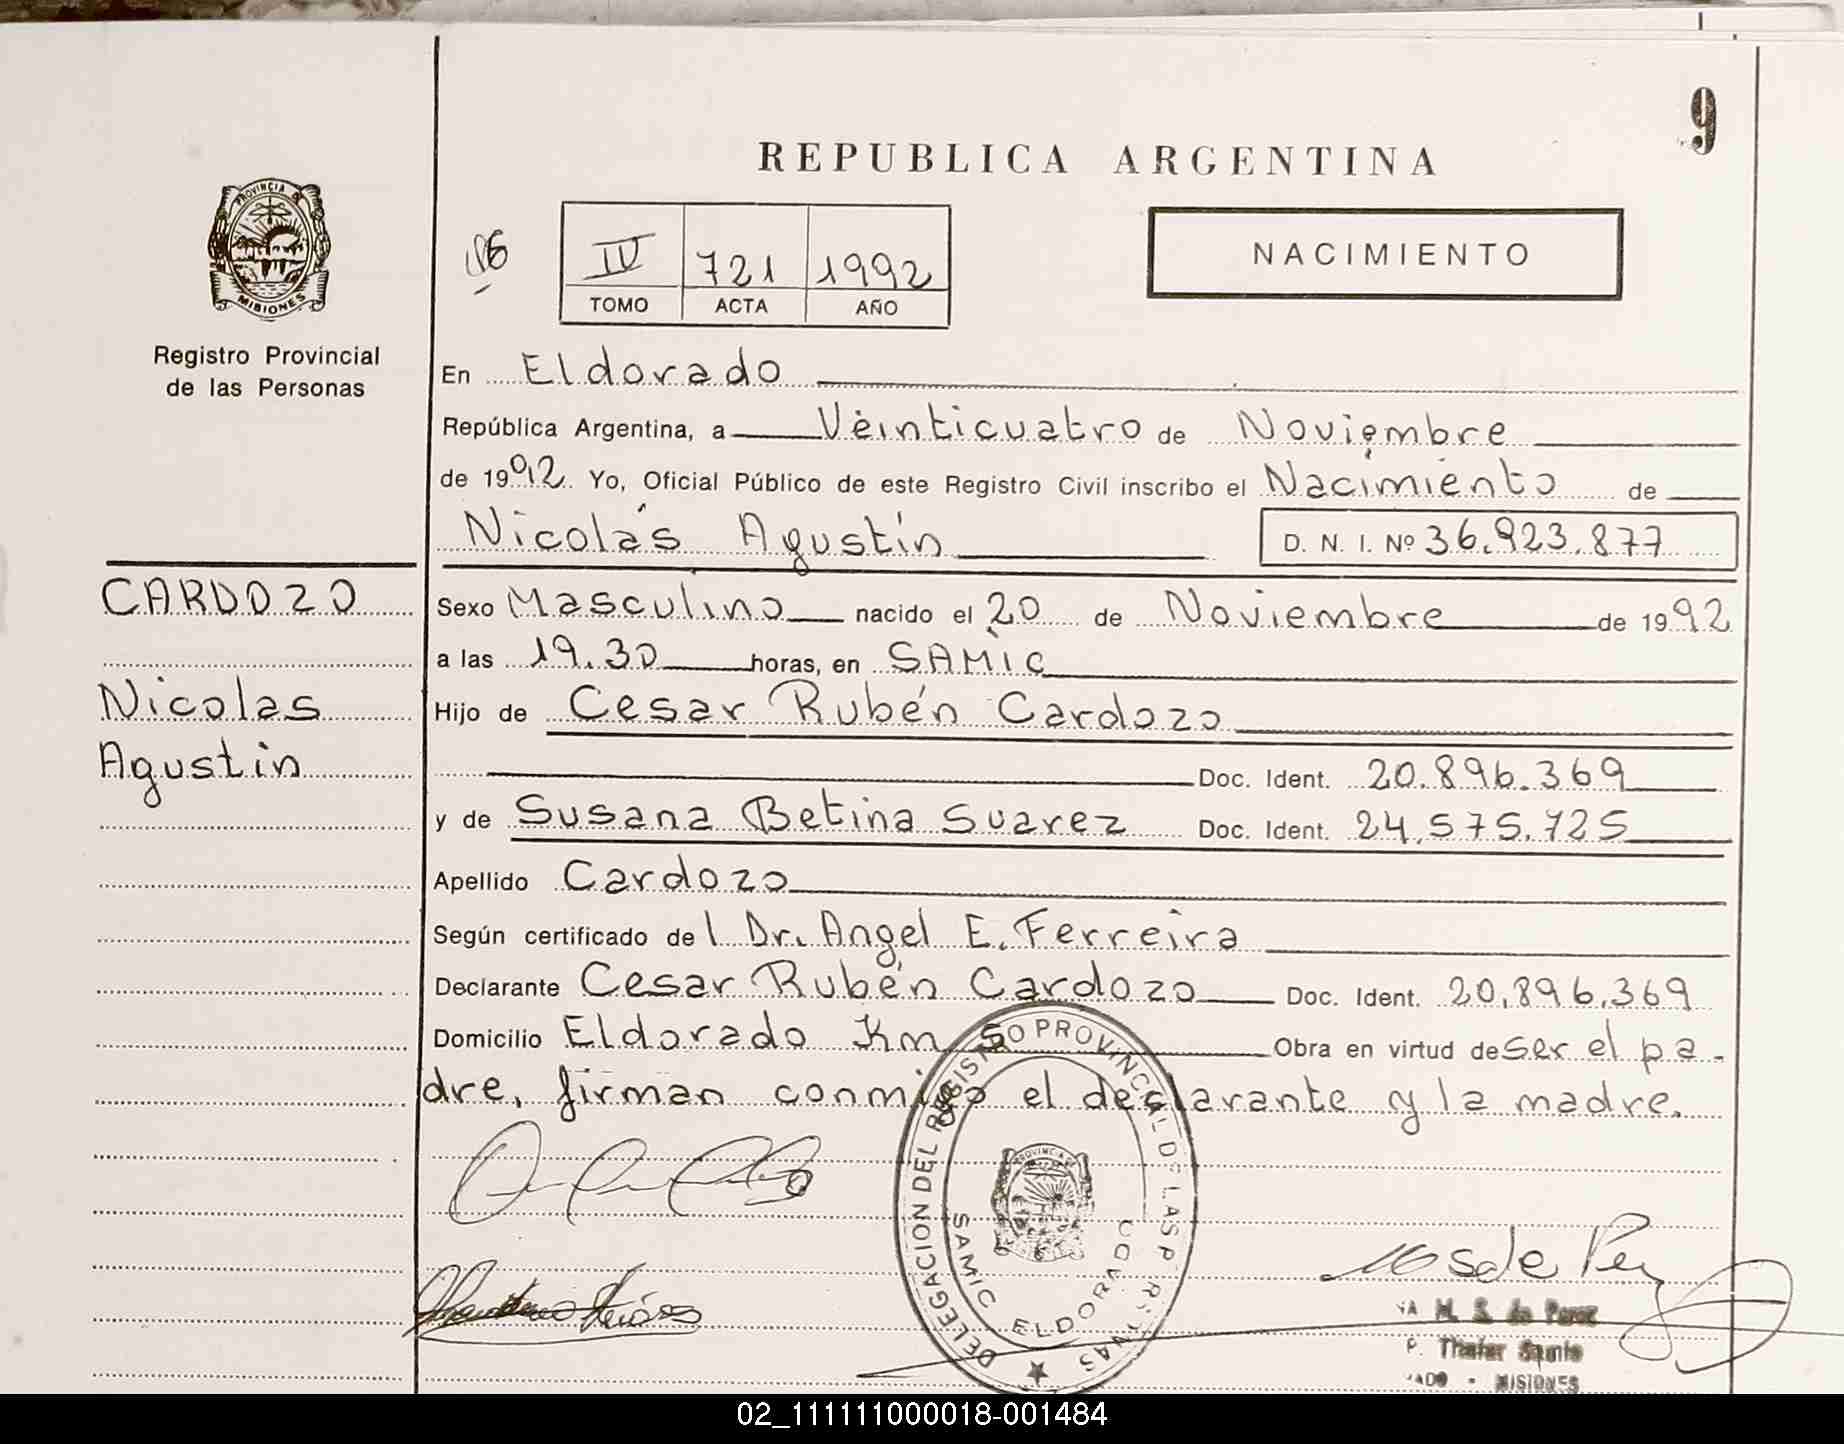 9
REPUBLICA ARGENTINA
PROVINCIA DE
MISIONES
Registro Provincial
de las Personas
IV 721 1992
TOMO ACTA AÑO
NACIMIENTO
En Eldorado
República Argentina, a Veinticuatro de Noviembre
de 1992. Yo, Oficial Público de este Registro Civil inscribo el Nacimiento de
Nicolás Agustín D. N. I. Nº 36.923.877
CARDOZO
Nicolas
Agustin
Sexo Masculino nacido el 20 de Noviembre de 1992
a las 19.30 horas, en SAMIC
Hijo de Cesar Rubén Cardozo
Doc. Ident. 20.896.369
y de Susana Betina Suarez Doc. Ident. 24.575.725
Apellido Cardozo
Según certificado del Dr. Angel E. Ferreira
Declarante Cesar Rubén Cardozo Doc. Ident. 20.896.369
Domicilio Eldorado Km Obra en virtud de ser el pa-
dre, firman conmigo el declarante y la madre.
DELEGACION DEL REGISTRO PROVINCIAL DE LAS P
SAMIC ELDORADO
M. S. de Perez
MISIONES
02_111111000018-001484